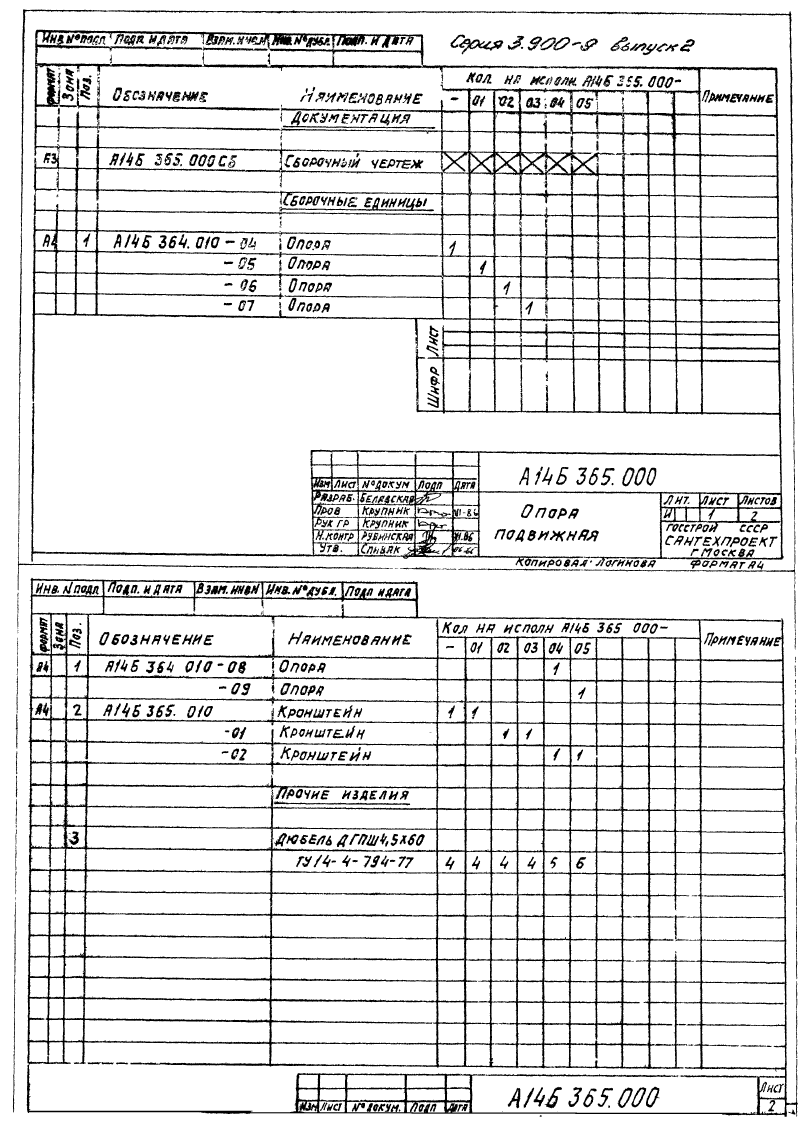 Инв.№подл Подп и дата Взам.инв.№ Инв.№дубл. Подп. и дата
Серия 3.900-9 выпуск 2
Формат Зона Поз. Обозначение Наименование Кол на исполн А14Б 365.000- Примечание
- 01 02 03 04 05
Документация
А3 А14Б 365.000СБ Сборочный чертеж X X X X X X
Сборочные единицы
А4 1 А14Б 364.010-04 Опора 1
-05 Опора 1
-06 Опора 1
-07 Опора 1
Лист
Шифр
А14Б 365.000
Изм Лист №докум Подп Дата
Разраб. Белявская
Пров Крупник VI-86
Рук гр Крупник
Н.контр Рубинская VI.86
Утв. Спивак
Опора
подвижная
Лит. Лист Листов
И 1 2
Госстрой СССР
Сантехпроект
г Москва
Копировал: Логинова Формат А4
Инв.Nподл Подп. и дата Взам. инвN Инв.№дубл. Подп и дата
Формат Зона Поз. Обозначение Наименование Кол на исполн А14Б 365 000- Примечание
- 01 02 03 04 05
А4 1 А14Б 364 010-08 Опора 1
-09 Опора 1
А4 2 А14Б 365. 010 Кронштейн 1 1
-01 Кронштейн 1 1
-02 Кронштейн 1 1
Прочие изделия
3 Дюбель ДГПШ4,5х60
ТУ14-4-794-77 4 4 4 4 5 6
Изм Лист №докум. Подп Дата
А14Б 365.000
Лист
2